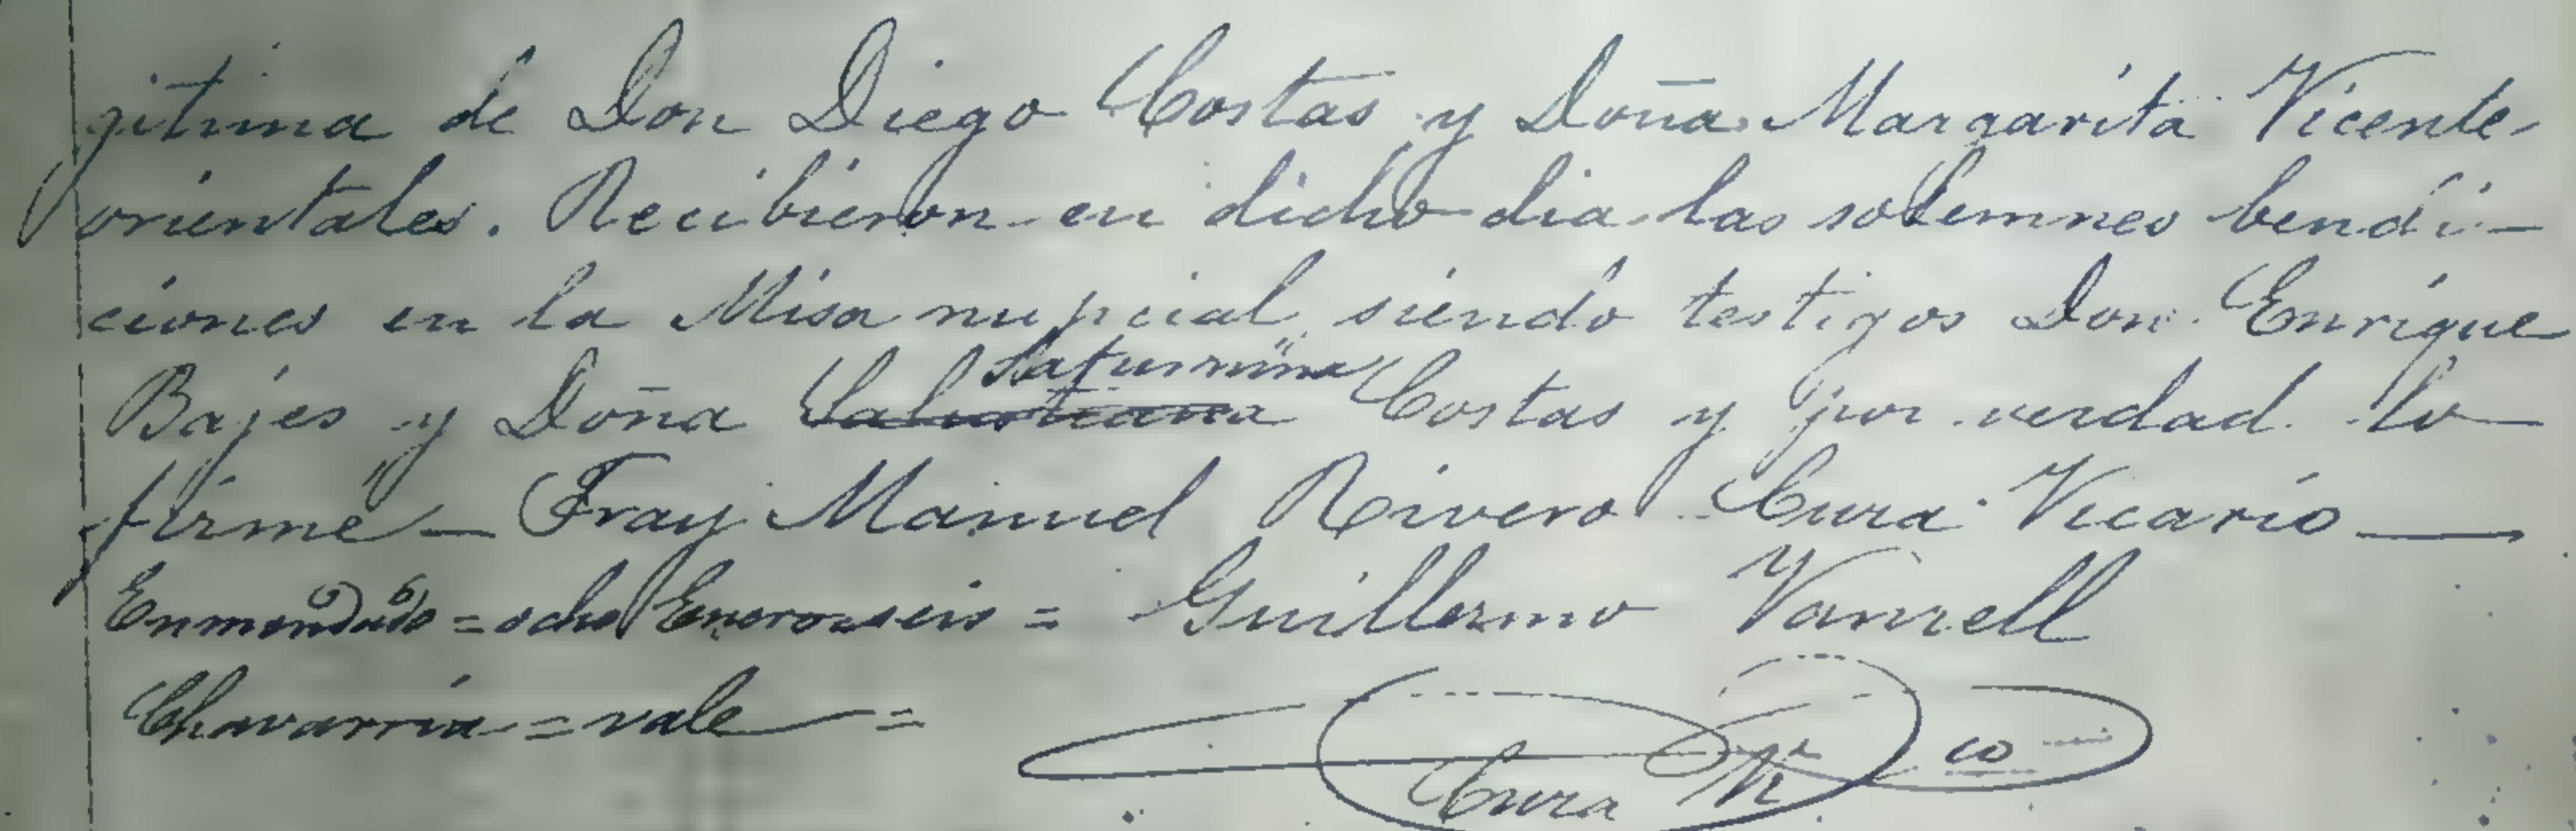 gitima de Don Diego Costas y Doña Margarita Vicente
orientales. Recibieron en dicho dia las solemnes bendi-
ciones en la Misa nupcial, siendo testigos Don Enrique
Saturnina
Bajes y Doña Salustiana Costas y por verdad lo
firmé — Fray Manuel Rivero Cura Vicario —
Enmendado = ocho Enero = seis = Guillermo Vanrell
Chavarria = vale =
Cura Vi co